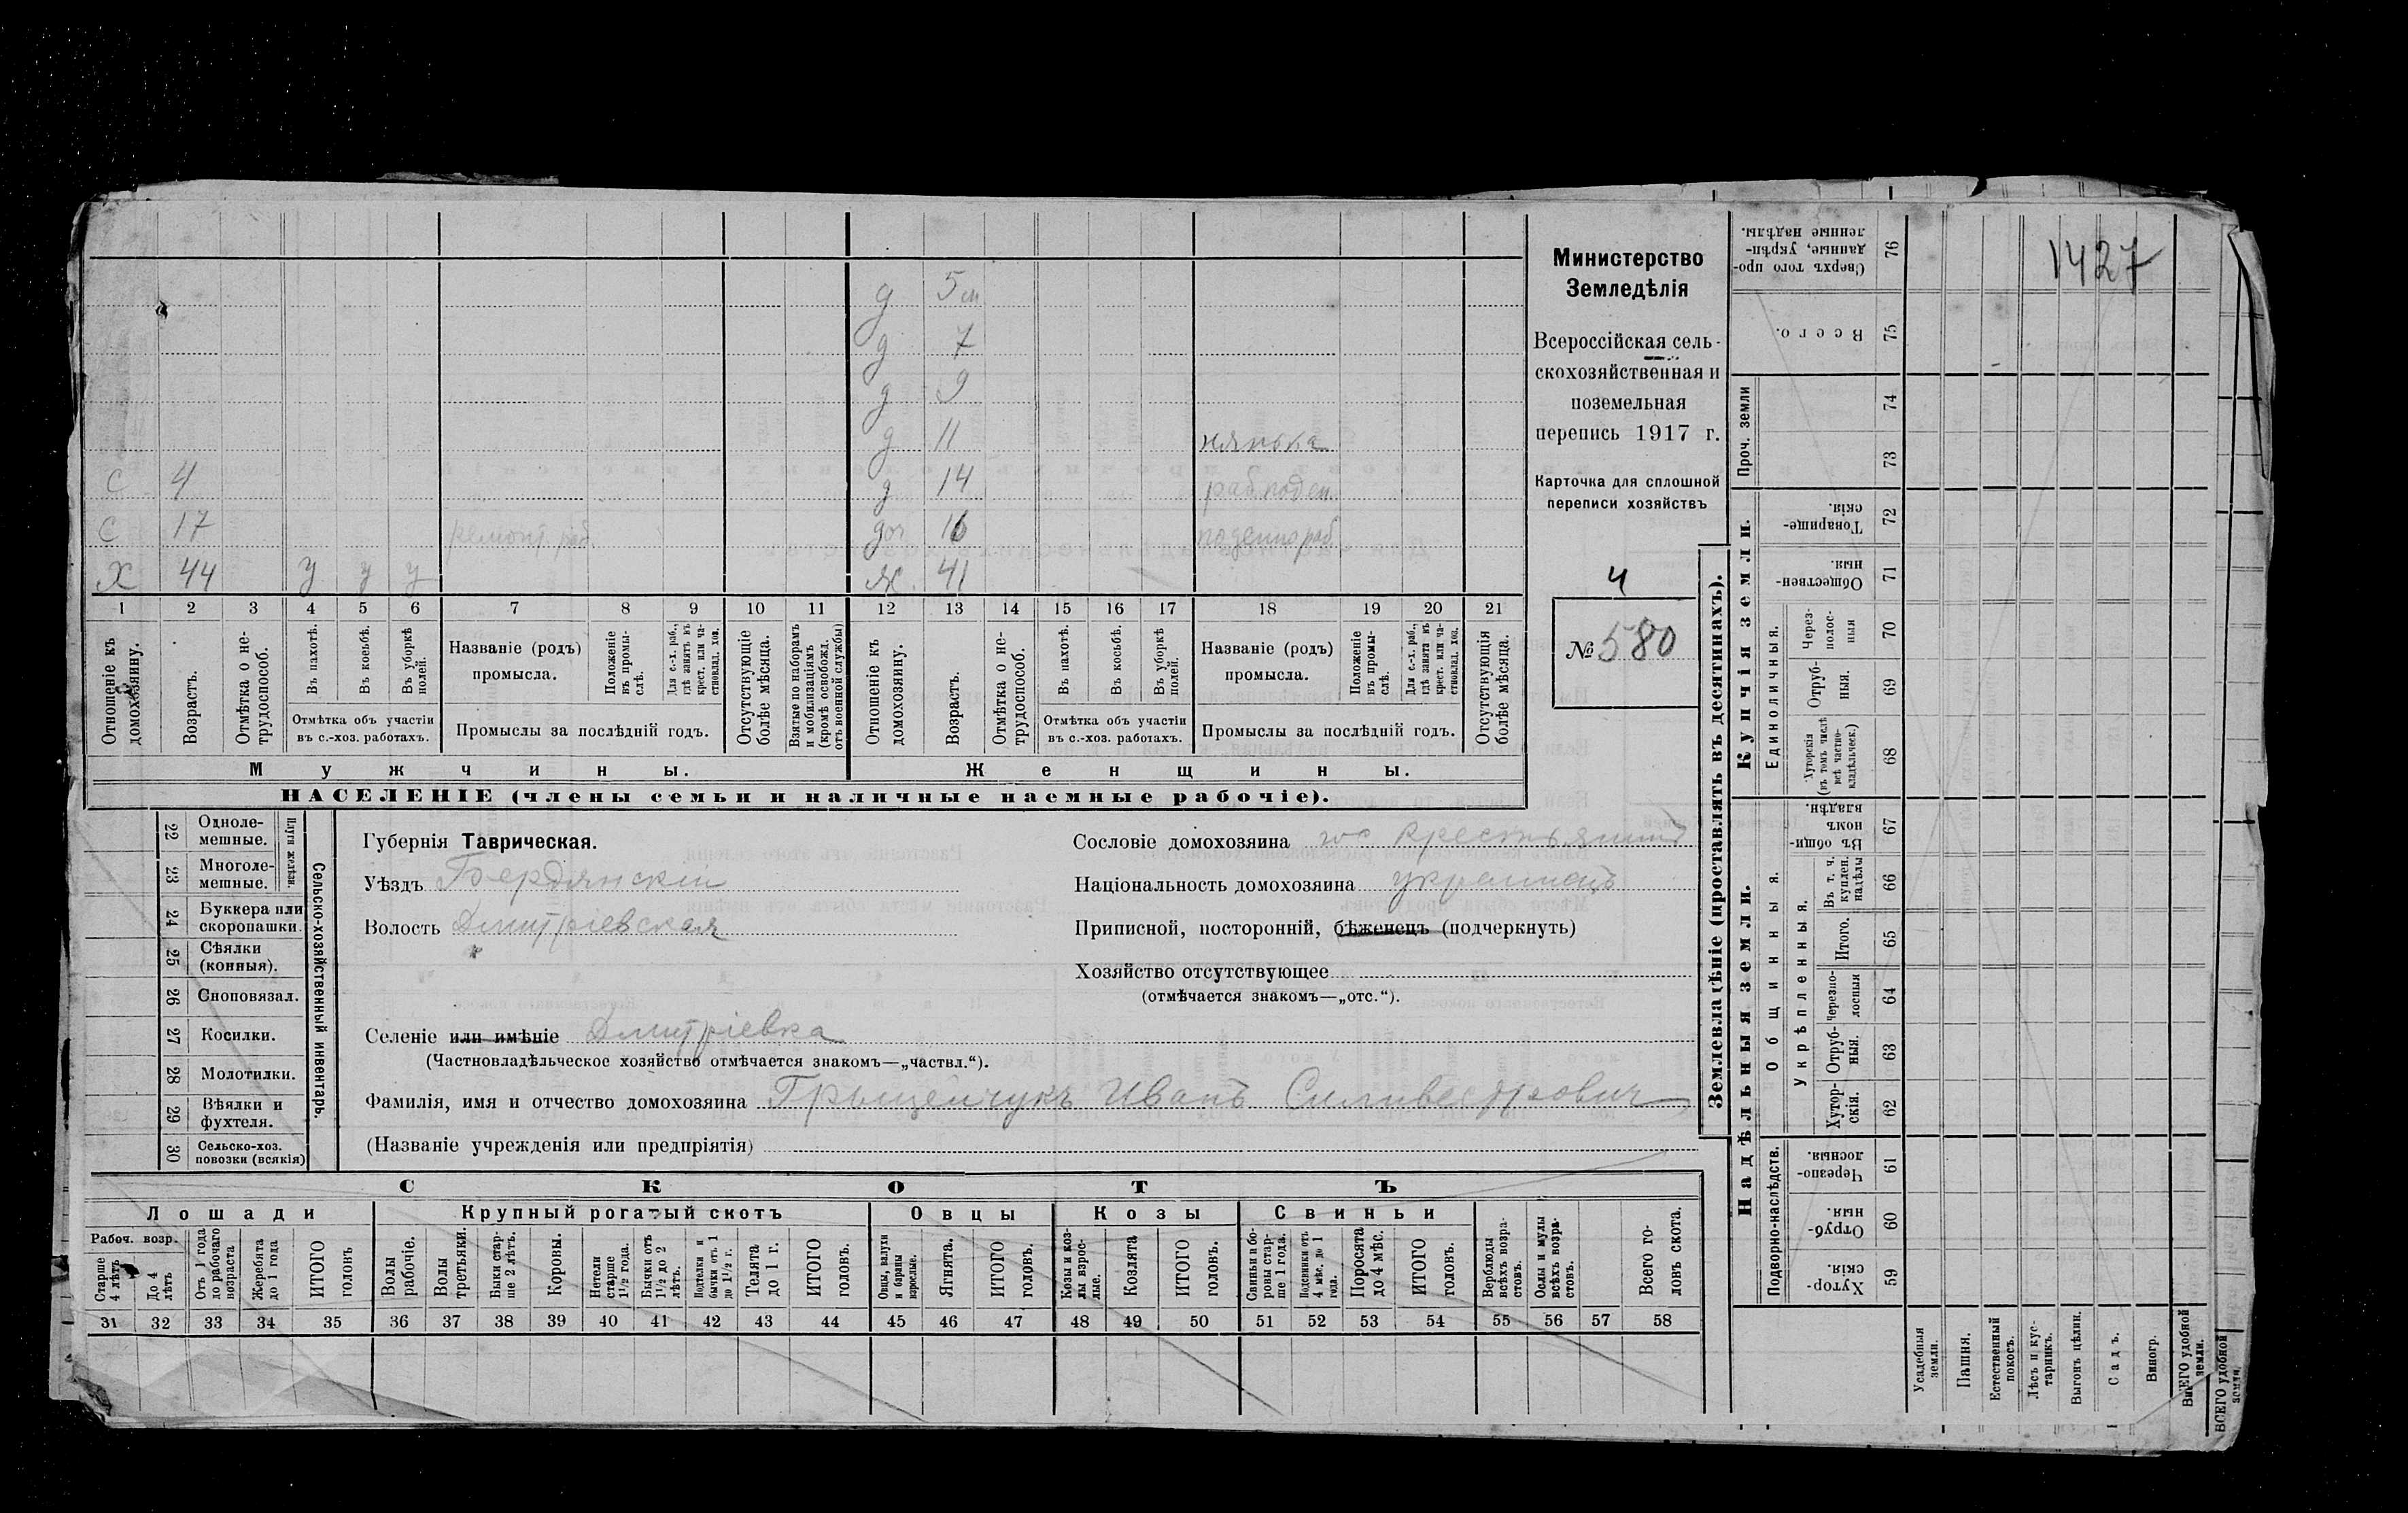 1427
д 5 м
д 7
д 9
д 11 нянька
с 4 д 14 раб. поден.
с 17 ремонт. раб. доч 16 поденно раб.
Х 44 у у у ж. 41
1 2 3 4 5 6 7 8 9 10 11 12 13 14 15 16 17 18 19 20 21
Отношеніе къ домохозяину.
Возрастъ.
Отмѣтка о не-трудоспособ.
Въ пахотѣ.
Въ косьбѣ.
Въ уборкѣ полей.
Отмѣтка объ участіи
въ с.-хоз. работахъ.
Названіе (родъ)
промысла.
Положеніе въ промы-слѣ.
Для с.-х. раб., гдѣ занятъ въ крест. или ча-стновлад. хоз.
Промыслы за послѣдній годъ.
Отсутствующіе болѣе мѣсяца.
Взятые по наборамъ и мобилизаціямъ (кромѣ освобожд. отъ военной службы)
Отношеніе къ домохозяину.
Возрастъ.
Отмѣтка о не-трудоспособ.
Въ пахотѣ.
Въ косьбѣ.
Въ уборкѣ полей.
Отмѣтка объ участіи
въ с.-хоз. работахъ.
Названіе (родъ)
промысла.
Положеніе въ промы-слѣ.
Для с.-х. раб., гдѣ занята въ крест. или ча-стновлад. хоз.
Промыслы за послѣдній годъ.
Отсутствующія болѣе мѣсяца.
Мужчины. Женщины.
НАСЕЛЕНІЕ (члены семьи и наличные наемные рабочіе).
Министерство
Земледѣлія
Всероссійская сель-
скохозяйственная и
поземельная
перепись 1917 г.
Карточка для сплошной
переписи хозяйствъ
4
№ 580
Плуги желѣзн.
22 Одноле-мешные.
23 Многоле-мешные.
24 Буккера или скоропашки.
25 Сѣялки (конныя).
26 Сноповязал.
27 Косилки.
28 Молотилки.
29 Вѣялки и фухтеля.
30 Сельско-хоз. повозки (всякія)
Сельско-хозяйственный инвентарь.
Губернія Таврическая.
Уѣздъ Бердянскій
Волость Дмитріевская
Сословіе домохозяина гос крестьянинъ
Національность домохозяина украинецъ
Приписной, посторонній, бѣженецъ (подчеркнуть)
Хозяйство отсутствующее
(отмѣчается знакомъ—„отс.“).
Селеніе или имѣніе Дмитріевка
(Частновладѣльческое хозяйство отмѣчается знакомъ—„частвл.“).
Фамилія, имя и отчество домохозяина Грыщенчукъ Иванъ Силивестрович
(Названіе учрежденія или предпріятія)
СКОТЪ
Лошади Крупный рогатый скотъ Овцы Козы Свиньи
Рабоч. возр.
Старше 4 лѣтъ
До 4 лѣтъ
Отъ 1 года до рабочаго возраста
Жеребята до 1 года
ИТОГО головъ
Волы рабочіе.
Волы третьяки.
Быки стар-ше 2 лѣтъ.
Коровы.
Нетели старше 1½ года.
Бычки отъ 1½ до 2 лѣтъ.
Подтелки и бычки отъ 1 до 1½ г.
Телята до 1 г.
ИТОГО головъ.
Овцы, валухи и бараны взрослые.
Ягнята.
ИТОГО головъ.
Козы и коз-лы взрос-лые.
Козлята
ИТОГО головъ.
Свиньи и бо-ровы стар-ше 1 года.
Подсвинки отъ 4 мѣс. до 1 года.
Поросята до 4 мѣс.
ИТОГО головъ.
Верблюды всѣхъ возра-стовъ.
Ослы и мулы всѣхъ возра-стовъ.
Всего го-ловъ скота.
31 32 33 34 35 36 37 38 39 40 41 42 43 44 45 46 47 48 49 50 51 52 53 54 55 56 57 58
Землевладѣніе (проставлять въ десятинахъ).
Купчія земли.
Надѣльныя земли.
76 Сверхъ того про-данные, укрѣп-ленные надѣлы.
75 Всего.
Проч. земли
74
73
72 Товарище-скія.
71 Обществен-ныя.
Единоличныя.
70 Через-полос-ныя
69 Отруб-ныя.
68 Хуторскія (въ томъ числѣ всѣ частно-владѣльческ.)
Общинныя.
67 Въ общи-номъ владѣн.
Укрѣпленныя.
66 Въ т. ч. куплен. надѣлы
65 Итого.
64 Черезпо-лосныя
63 Отруб-ныя.
62 Хутор-скія.
Подворно-наслѣдств.
61 Черезпо-лосныя.
60 Отруб-ныя.
59 Хутор-скія.
Усадебная земля.
Пашня.
Естественный покосъ.
Лѣсъ и кус-тарникъ.
Выгонъ цѣлин.
Садъ.
Виногр.
ВСЕГО удобной земли.
ВСЕГО удобной земли.